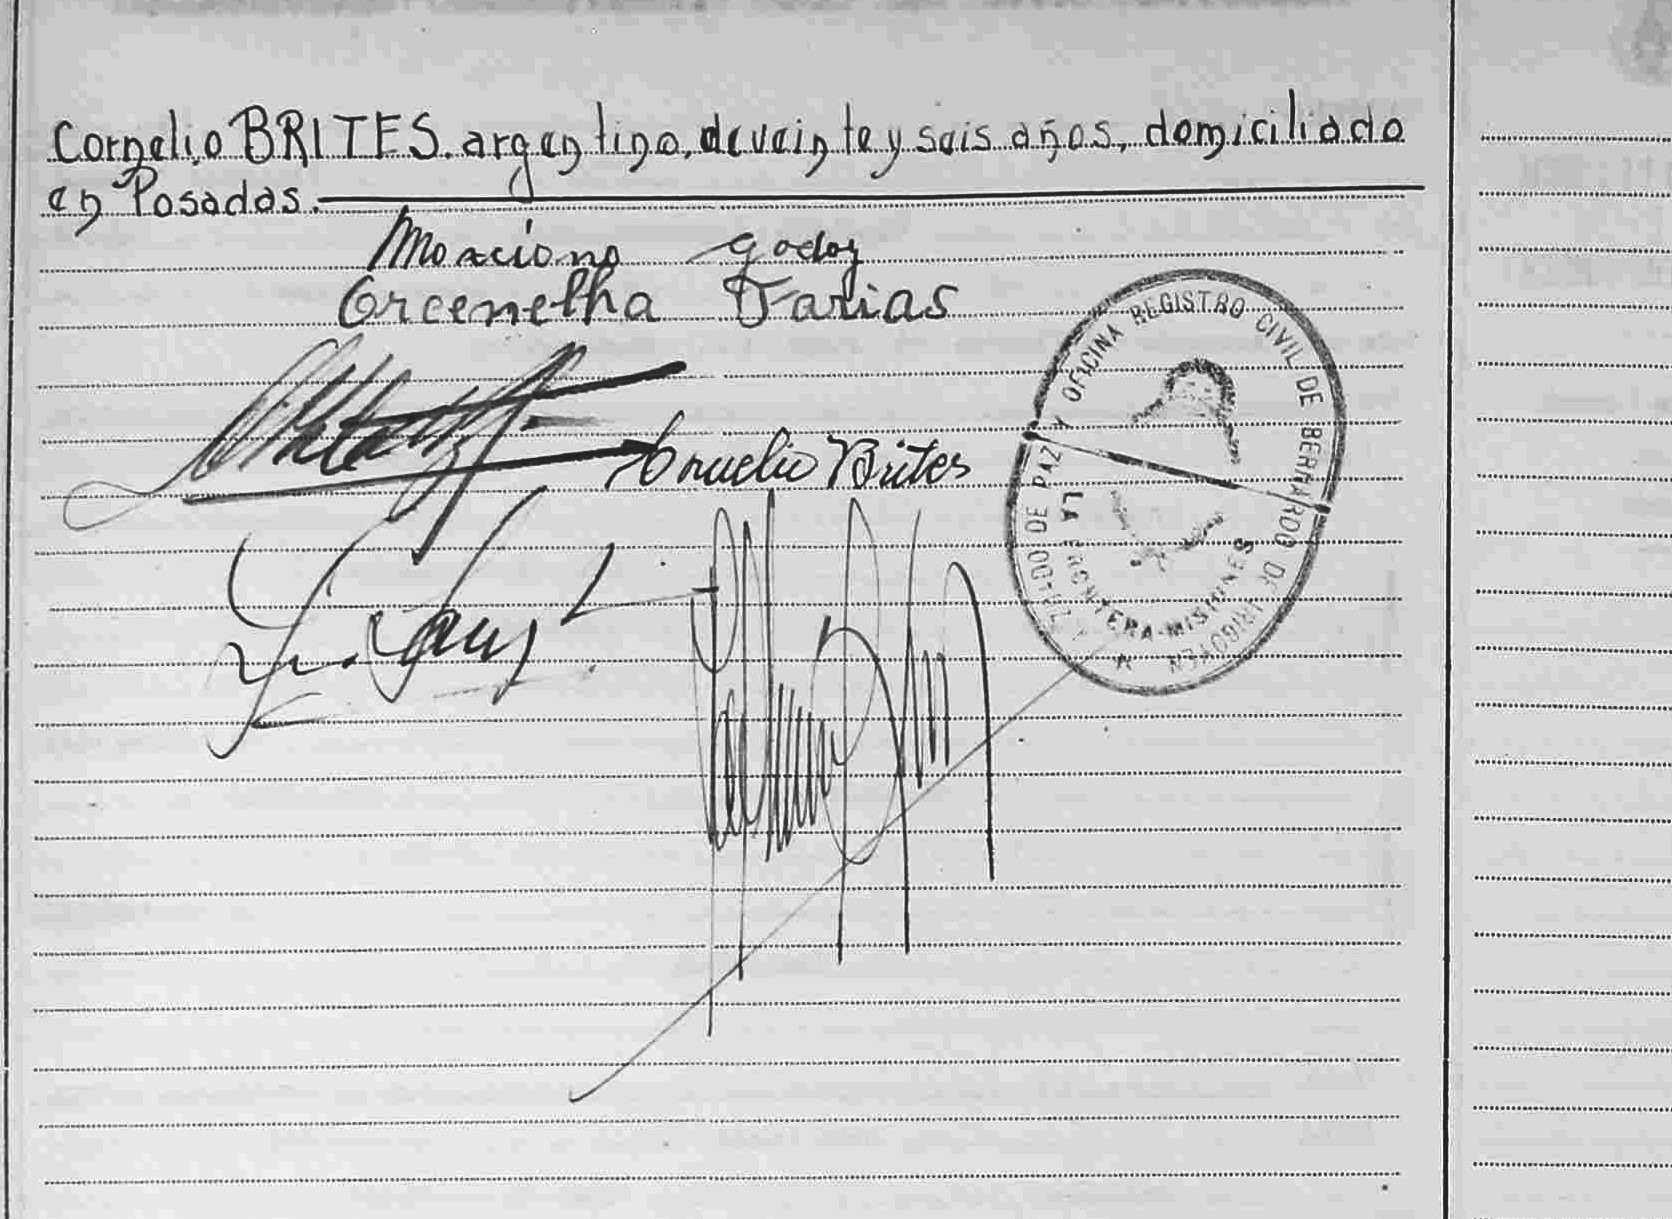 Cornelio BRITES. argentino, de veinte y seis años, domiciliado
en Posadas.
Marciano Godoy
Orcenelha Farias
Cornelio Brites
JUZGADO DE PAZ Y OFICINA REGISTRO CIVIL DE BERNARDO DE IRIGOYEN
LA FRONTERA - MISIONES